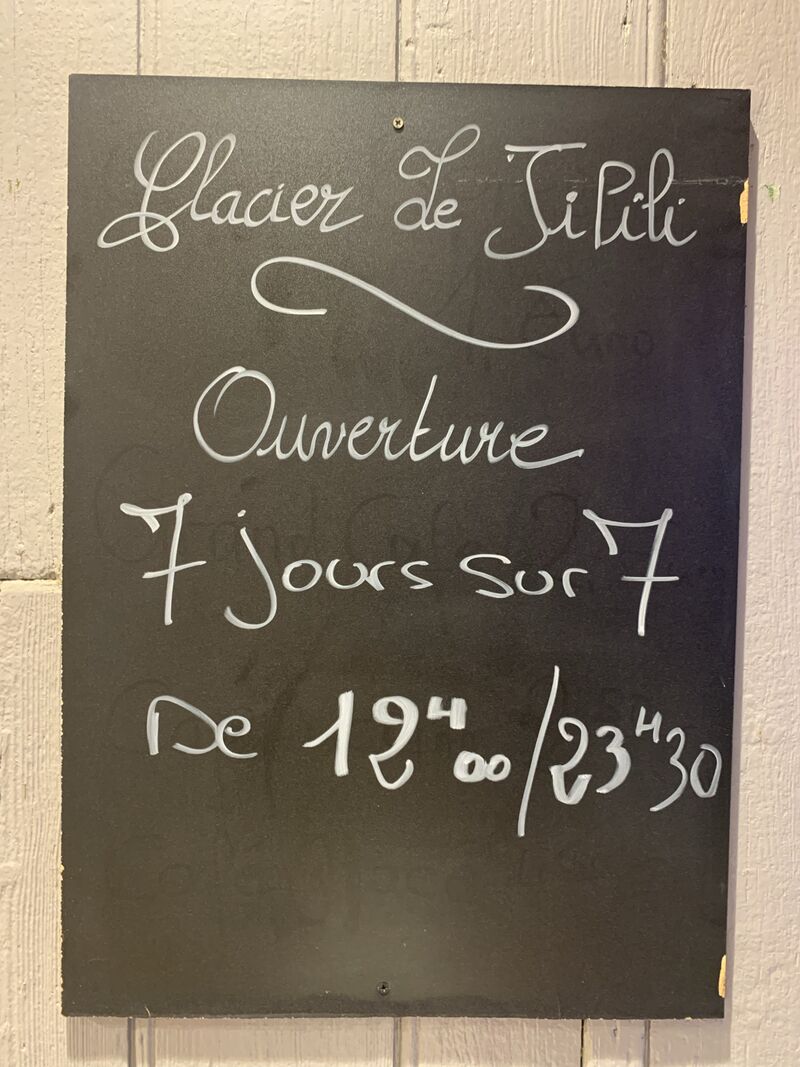 Glacier Le TiPili
Ouverture
7 jours sur 7
De 12H00/23H30